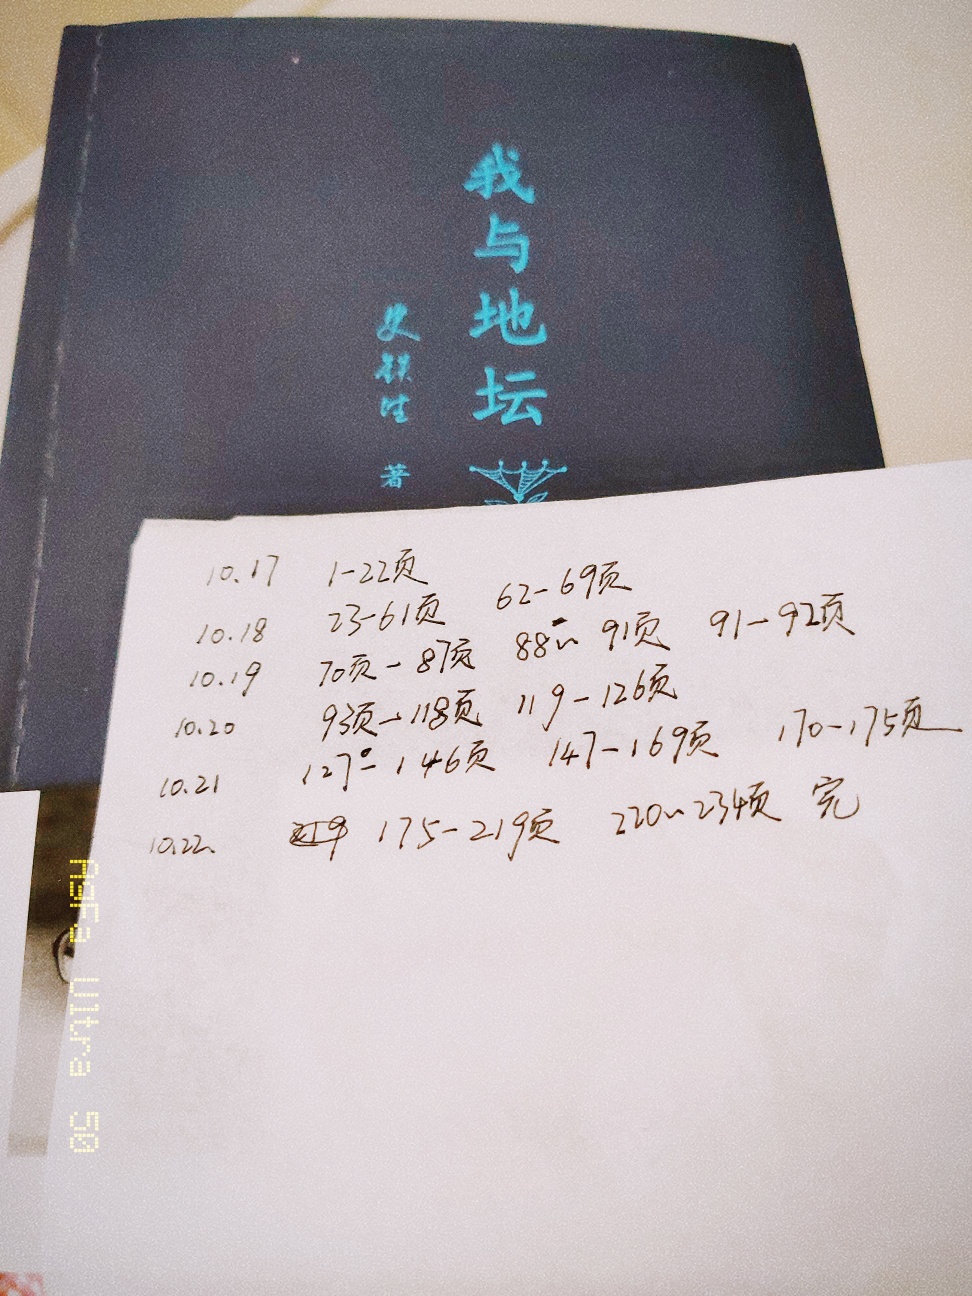 我与地坛
史铁生 著
10.17 1-22页
10.18 23-61页 62-69页
10.19 70页-87页 88~91页 91-92页
10.20 93页-118页 119-126页
10.21 127-146页 147-169页 170-175页
10.22. 175-219页 220~234页 完
Agfa Ultra 50